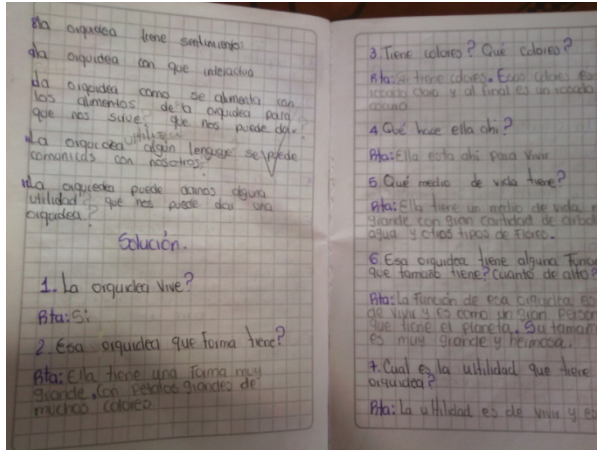 la orquidea tiene sentimientos
la orquidea con que interactua
La orquidea como se alimenta con
los alimentos de la orquidea para
que nos sirve? que nos puede dar?
La orquidea utiliza algun lenguaje se puede
comunicas con nosotros?
La orquidea puede darnos alguna
utilidad? que nos puede dar una
orquidea?
Solución.
1. La orquidea vive?
Rta: Si
2. Esa orquidea que forma tiene?
Rta: Ella tiene una forma muy
grande. Con petalos grandes de
muchos colores
3. Tiene colores? Que colores?
Rta: Si tiene colores. Esos colores es
rosado claro y al final es un rosado
4. Qué hace ella ahi?
Rta: Ella esta ahi para vivir
5. Qué medio de vida tiene?
Rta: Ella tiene un medio de vida
grande con gran cantidad de
agua y otros tipos de flores.
6. Esa orquidea tiene alguna
que tamaño tiene? Cuanto de alto?
Rta: La funcion de esa orquidea es
de vivir y es como un gran
que tiene el planeta. Su
es muy grande y hermosa.
7. Cual es la ultilidad que tiene
orquidea?
Rta: La ultilidad es de vivir y es